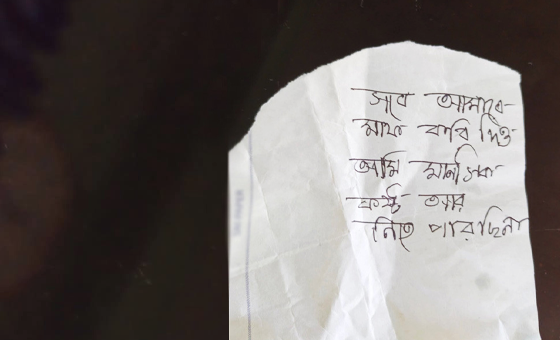 সবে আমাবে
মাফ করি দিও
আমি মানসিক
কষ্ট আর
নিতে পারছিনা